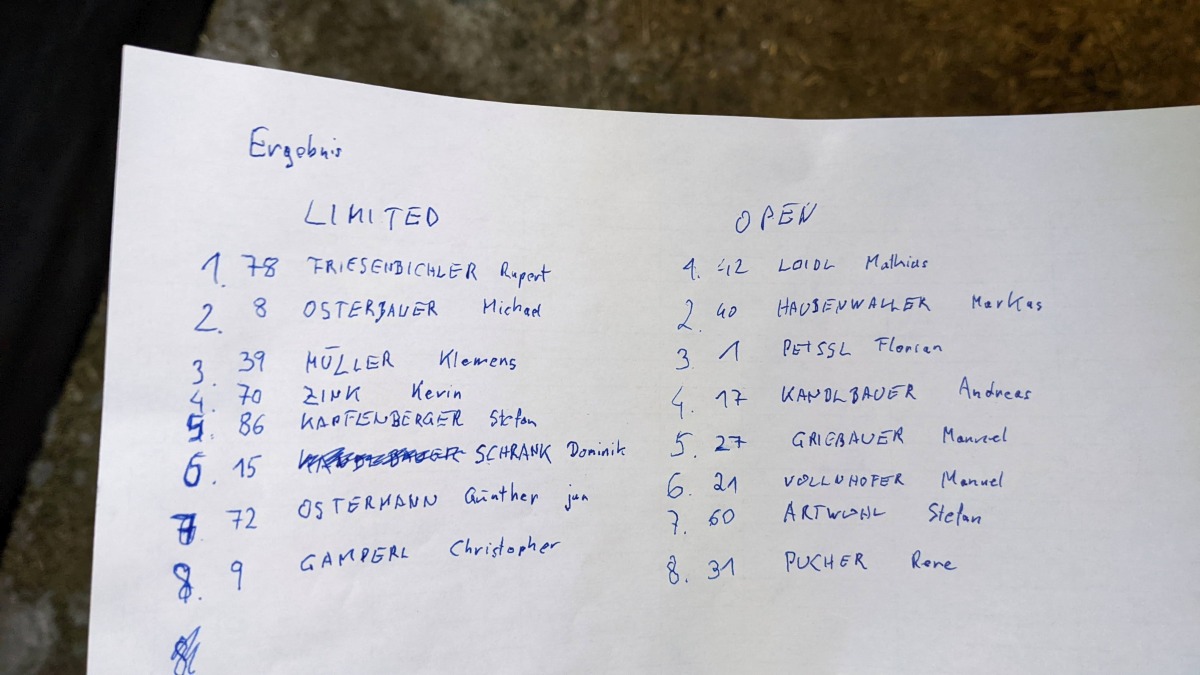 Ergebnis
LIMITED
1. 78 FRIESENBICHLER Rupert
2. 8 OSTERBAUER Michael
3. 39 MÜLLER Klemens
4. 70 ZINK Kevin
5. 86 KAPFENBERGER Stefan
6. 15 SCHRANK Dominik
7 72 OSTERMANN Günther jun
8. 9 GAMPERL Christopher
OPEN
1. 42 LOIDL Mathias
2. 40 HAUBENWALLER Markus
3 1 PEISSL Florian
4. 17 KANDLBAUER Andreas
5. 27 GRIEBAUER Manuel
6. 21 VOLLNHOFER Manuel
7. 60 ARTWOHL Stefan
8. 31 PUCHER Rene